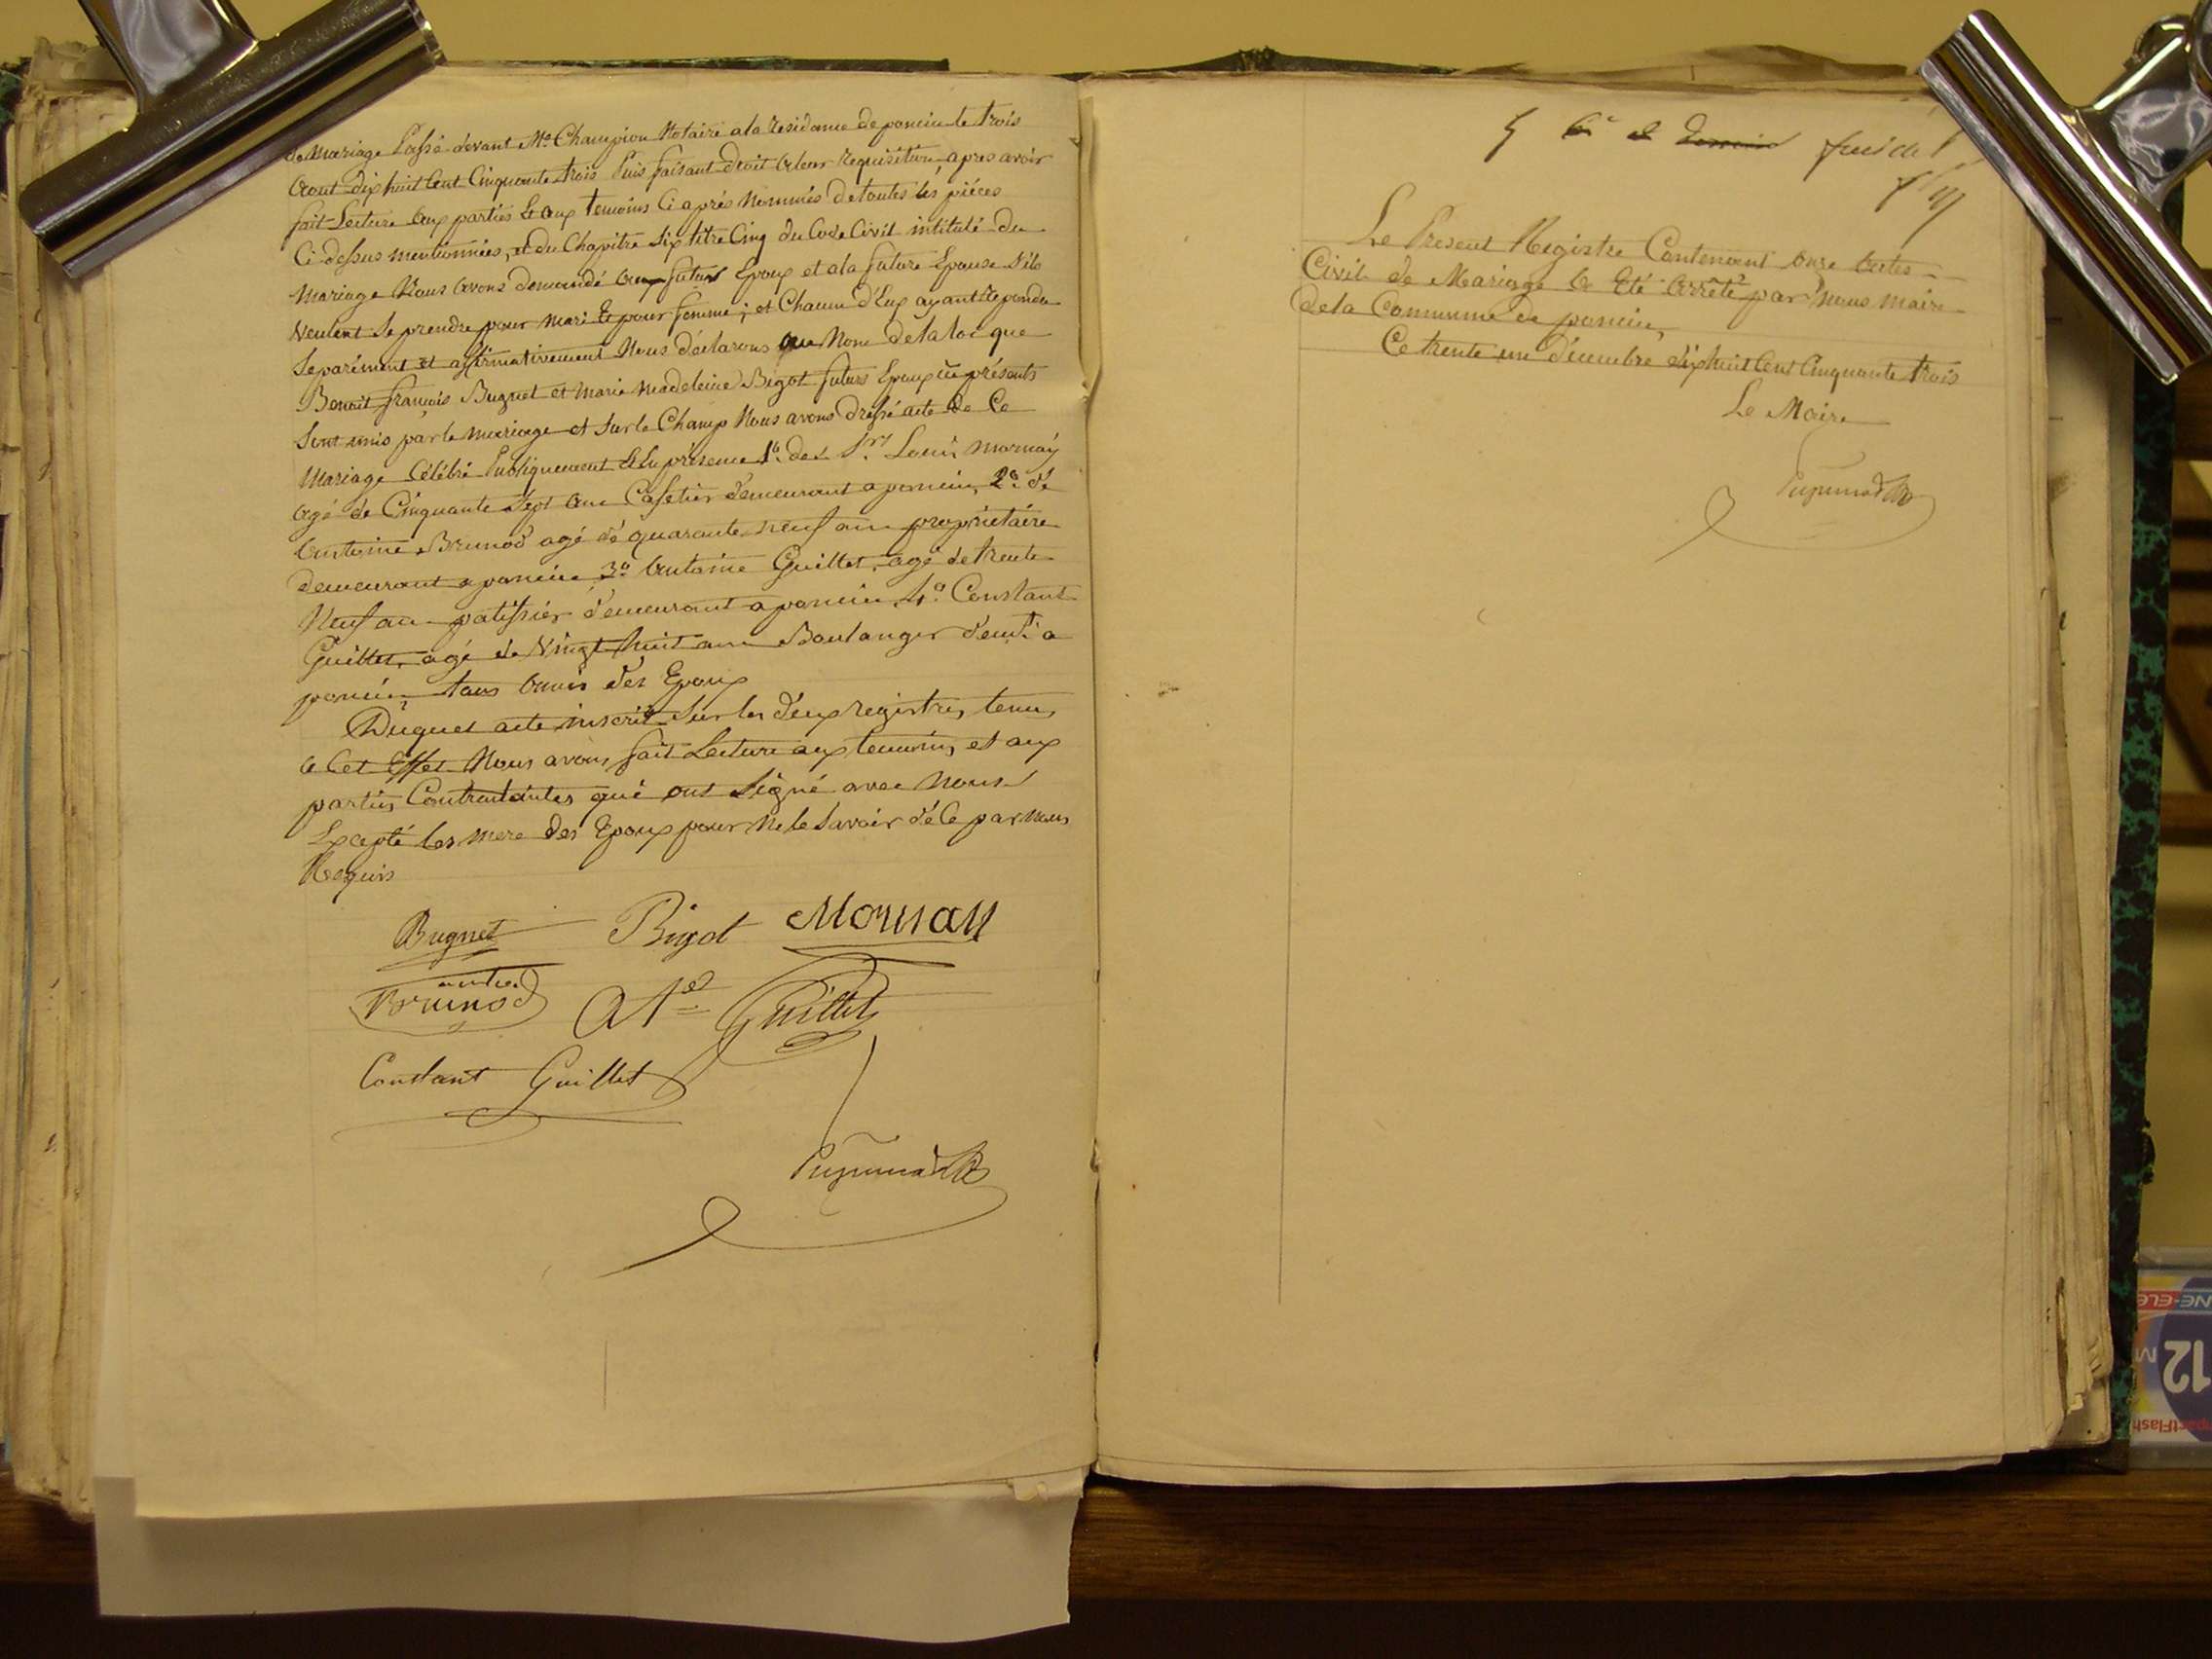 de Mariage Passé devant Me Champion Notaire a la résidance de poncin le trois
aout dix huit Cent Cinquante trois Puis faisant droit a leur requisition, apres avoir
fait Lecture aux parties et aux temoins Ci après Nommés de toutes les pièces
Ci dessus mentionnées, et du Chapitre Six titre Cinq du Code Civil intitulé du
Mariage Nous avons demandé aux futurs Epoux et a la future Epouse S'ils
Veulent Se prendre pour mari et pour femme ; et Chacun d'Eux ayant Repondu
Separément et affirmativement Nous déclarons au Nom de la loi que
Benoit françois Bugnet et Marie Madeleine Bigot futurs Epoux ici présents
Sont unis par le mariage et Sur le Champ Nous avons dressé acte de Ce
Mariage Célébré Publiquement et En présence 1º des Srs Louis Mornay
agé de Cinquante Sept ans Cafetier demeurant a poncin, 2º de
Antoine Brunod agé de quarante neuf ans propriétaire
demeurant a poncin 3º Antoine Guillet, agé de trente
Neuf ans patissier demeurant a poncin, 4º Constant
Guillet, agé de Vingt huit ans Boulanger demt a
poncin, tous amis des Epoux
Duquel acte inscrit Sur les deux registres tenus
a Cet Effet Nous avons fait Lecture aux temoins et aux
parties Contractantes qui ont Signé avec Nous
Excepté les mere des Epoux pour Ne le Savoir de Ce par nous
Requis
Bugnet Bigot Mornay
Brunod
Guillet
Constant Guillet
5
Le Present Registre Contenant onze actes
Civil de Mariage a Eté arrêté par Nous Maire
de la Commune de poncin,
Ce trente un Décembre dix huit Cent Cinquante trois
Le Maire
12